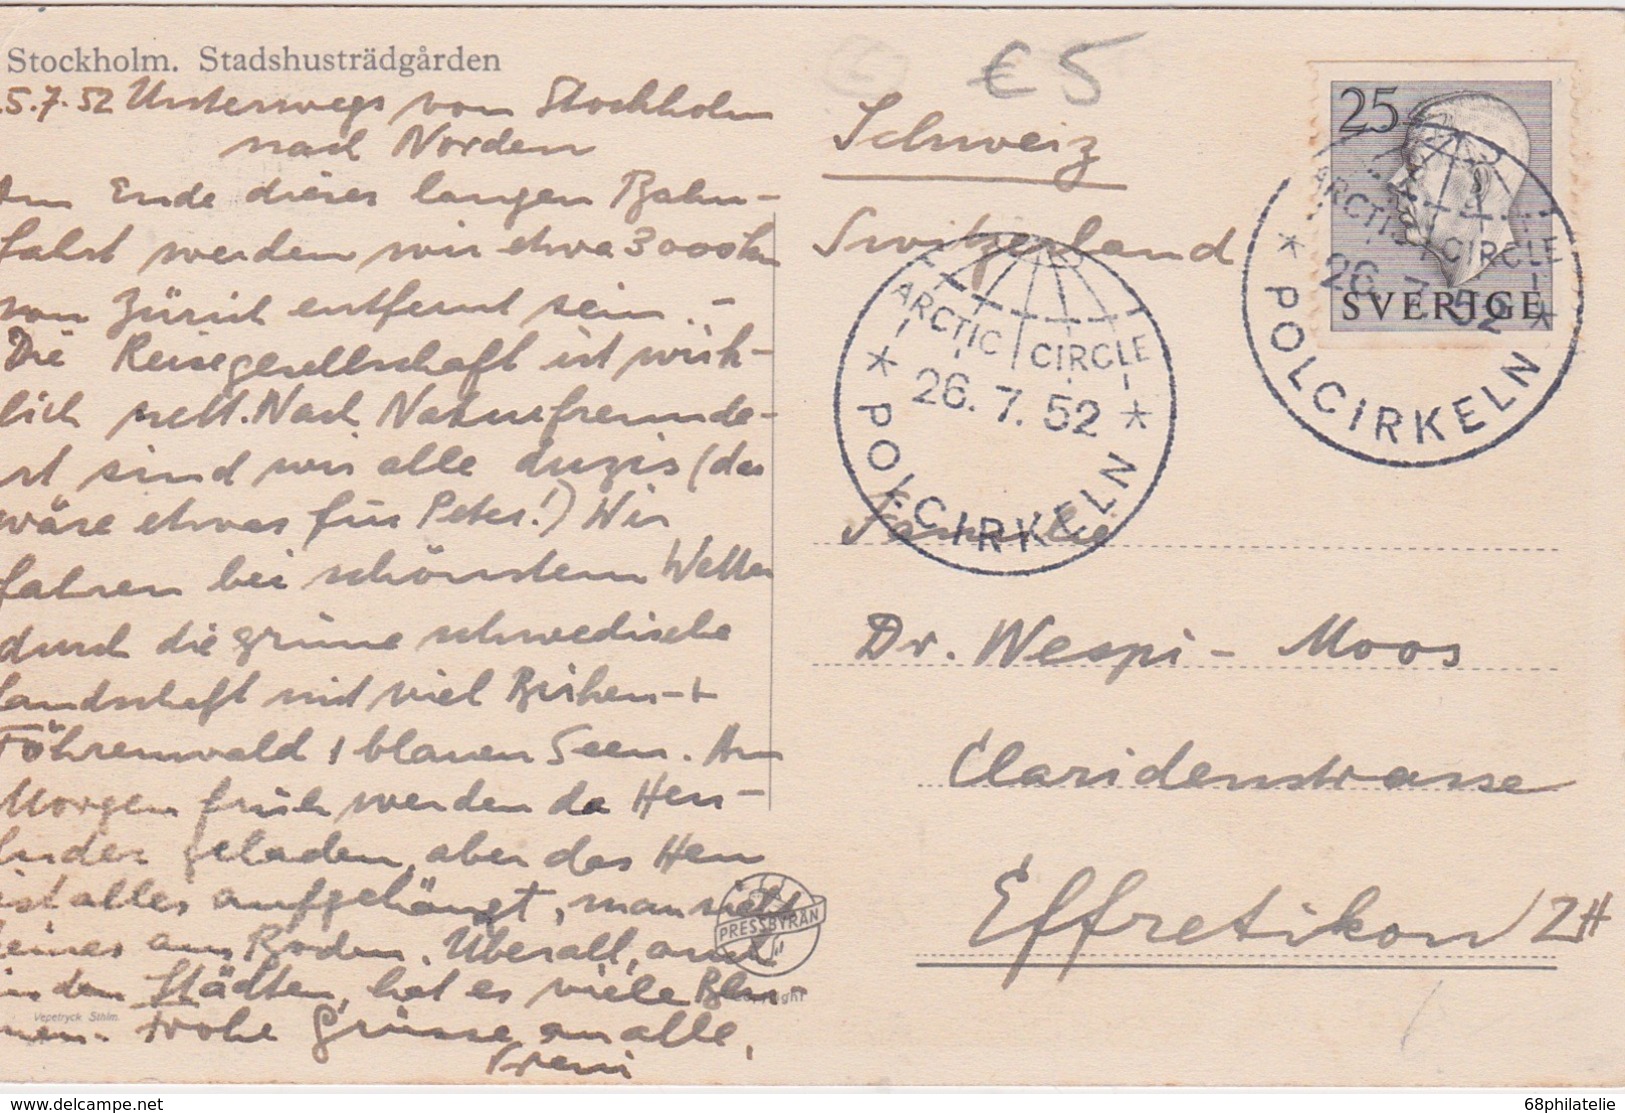 Stockholm. Stadshusträdgården
5.7.52 Unterwegs von Stockholm
nach Norden
Am Ende dieser langen Bahn-
fahrt werden wir etwa 3000 km
von Zürich entfernt sein. -
Die Reisegesellschaft ist wirk-
lich nett. Nach Naturfreunde-
art sind wir alle duzis (das
wäre etwas für Peter!) Wir
fahren bei schönstem Wetter
durch die grüne schwedische
Landschaft mit viel Birken- +
Föhrenwald, blauen Seen. Am
Morgen früh werden da Heu-
fuder geladen, aber das Heu
ist alles aufgehängt, man sieht
keines am Boden. Überall, auch
in den Städten, hat es viele Blu-
men. Frohe Grüsse an alle,
Vreni
Vepetryck Sthlm.
PRESSBYRÅN
Copyright
€5
Schweiz
Switzerland
25
SVERIGE
ARCTIC CIRCLE
26. 7. 52
* POLCIRKELN *
ARCTIC CIRCLE
26. 7. 52
* POLCIRKELN *
Familie
Dr. Wespi - Moos
Claridenstrasse
Effretikon ZH
https://www.delcampe.net
68philatelie